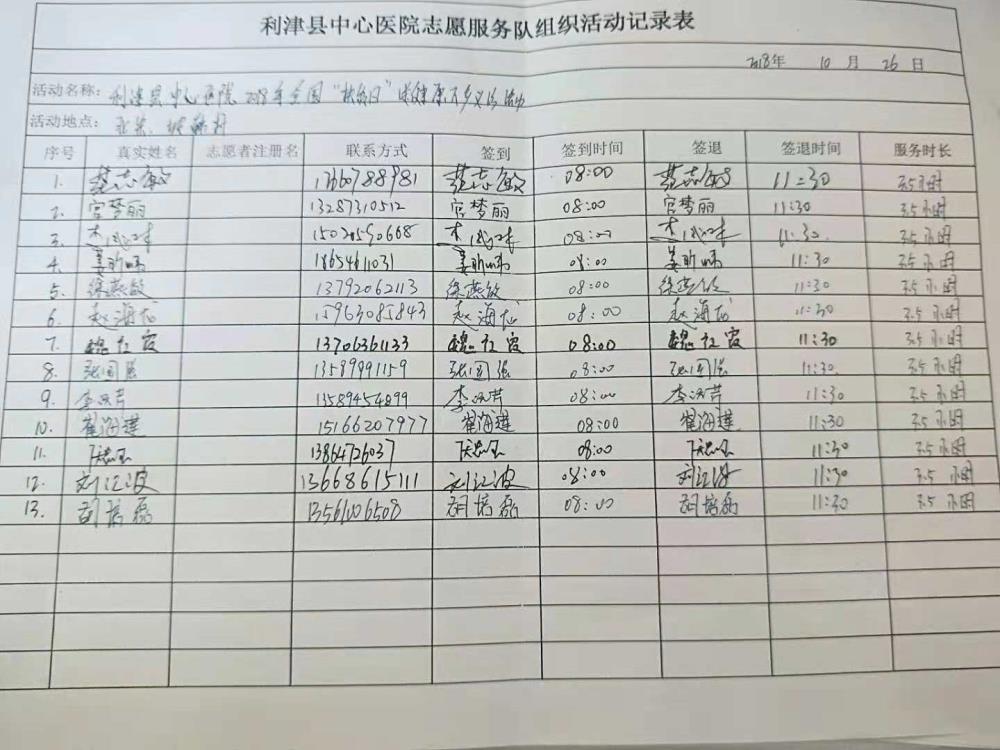 利津县中心医院志愿服务队组织活动记录表
2018年 10 月 26 日
活动名称: 利津县中心医院2018年全国"扶贫日"健康 义诊活动
活动地点:
序号 真实姓名 志愿者注册名 联系方式 签到 签到时间 签退 签退时间 服务时长
1. 蔡志敏 蔡志敏 08:00 蔡志敏 11:30 3.5小时
2. 宫梦丽 13287310512 宫梦丽 08:00 宫梦丽 11:30 3.5小时
3. 08:00 11:30 3.5小时
4. 18654611031 08:00 11:30 3.5小时
5. 徐燕敏 13792062113 徐燕敏 08:00 徐燕敏 11:30 3.5小时
6. 赵海龙 15963085843 赵海龙 08:00 赵海龙 11:30 3.5小时
7. 魏红霞 13706361133 魏红霞 08:00 魏红霞 11:30 3.5小时
8. 张国强 13589991159 张国强 08:00 张国强 11:30 3.5小时
9. 13589454899 08:00 11:30 3.5小时
10. 崔海莲 15166207977 崔海莲 08:00 崔海莲 11:30 3.5小时
11. 13864726037 08:00 11:30 3.5小时
12. 刘江波 13668615111 刘江波 08:00 刘江波 11:30 3.5小时
13. 胡培磊 13561006508 胡培磊 08:00 胡培磊 11:30 3.5小时